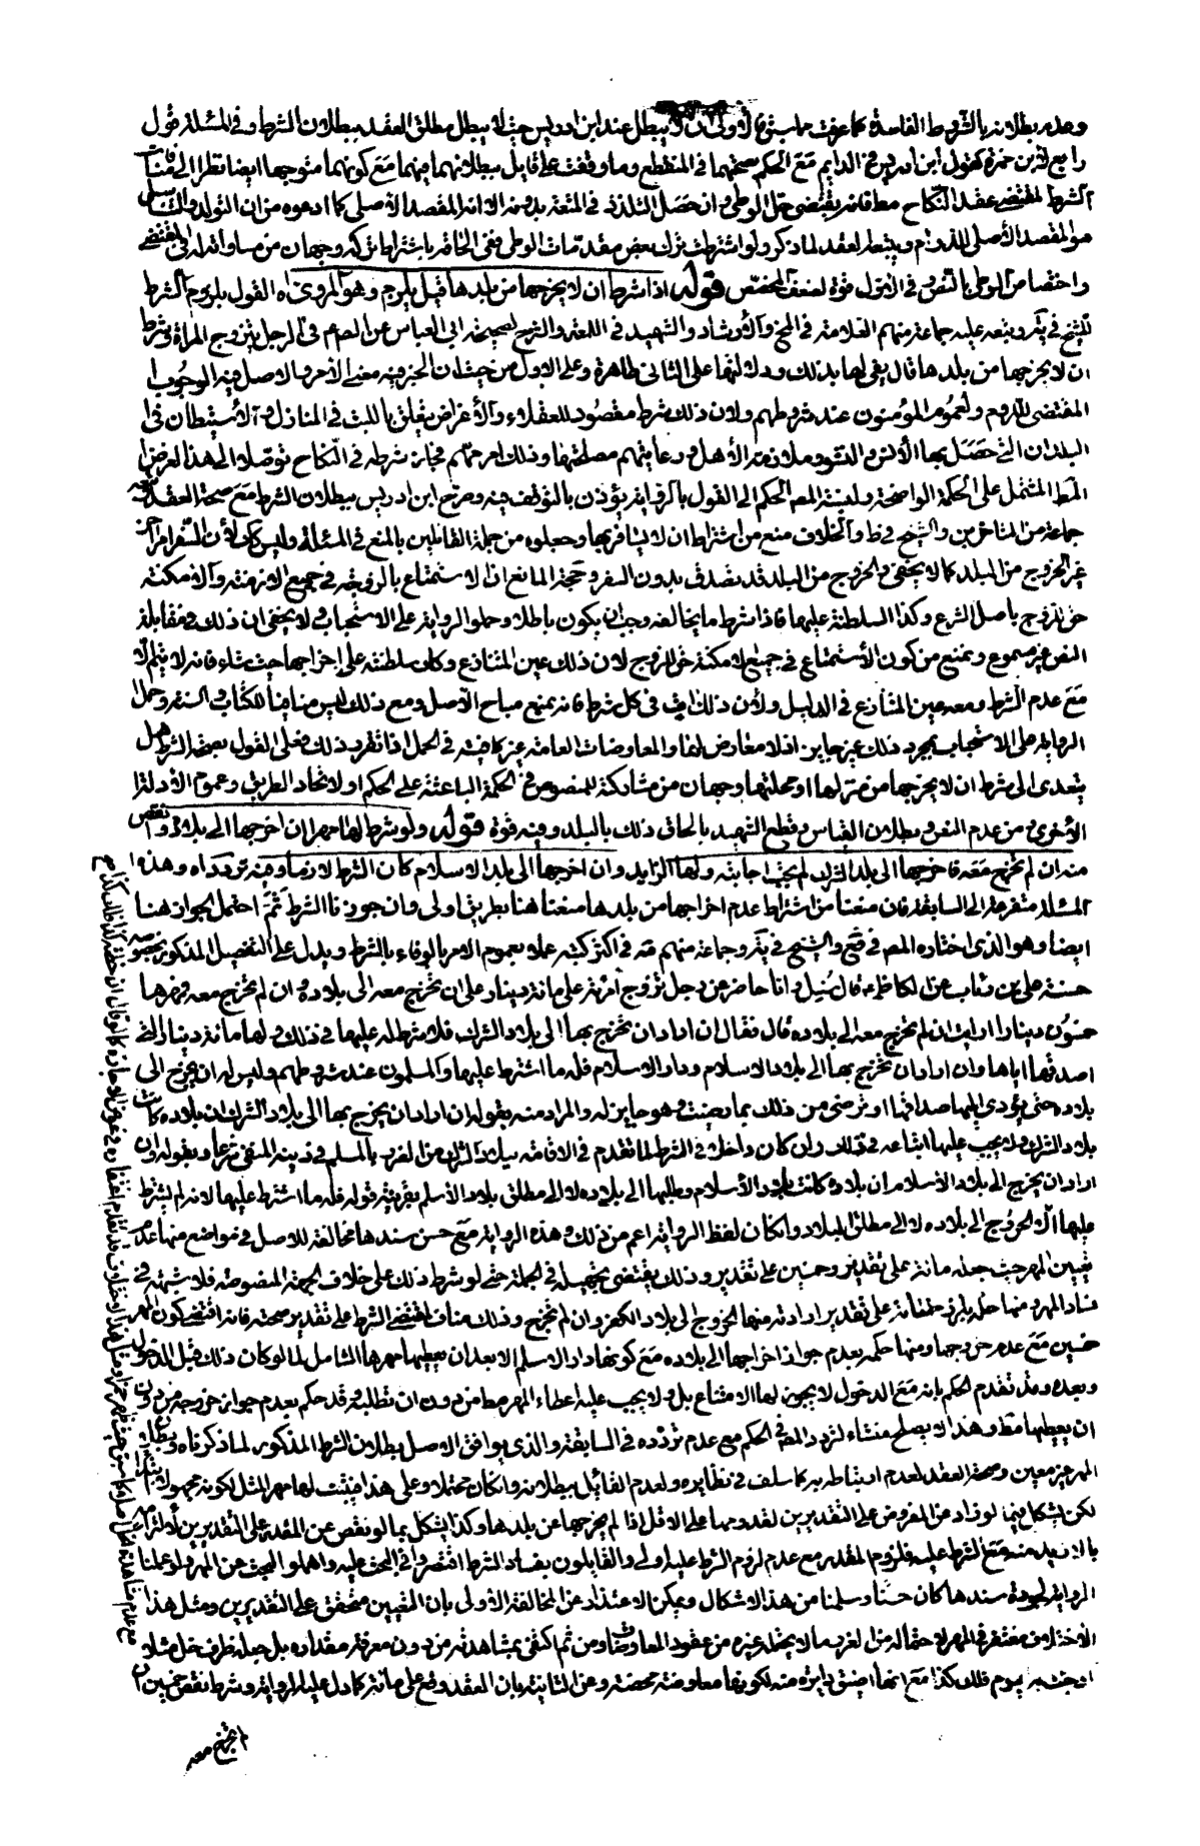 وعدم بطلانه بالشروط الفاسدة كما عرفت مما سبق فالاولى ان لا يبطل عند ابن ادريس حيث لا يبطل مطلق العقد ببطلان الشرط وفي المسئلة قول
رابع لابن حمزة كقول ابن ادريس في الدايم مع الحكم بصحتهما في المنقطع وما وقفت على قايل ببطلانهما فيهما مع كونهما متوجها ايضا نظرا الى منافات
الشرط لمقتضى عقد النكاح مطلقا فانه يقتضي حل الوطي وان حصل التلذذ في المتعة بدونه الا انه المقصد الاصلي كما ادعوه من ان التولد والتناسل
هو المقصد الاصلي للدوام ويتبعه العقد لما ذكر ولو اشترطت ترك بعض مقدمات الوطي ففي الحاقه باشتراط تركه وجهان من مساواته له في المقتضي
واختصاص الوطي بالنص وفي الاول قوة لضعف المخصص قوله اذا شرط ان لا يخرجها من بلدها قيل يلزم وهو المروي اه القول بلزوم الشرط
للشيخ في يه وتبعه عليه جماعة منهم العلامة في المخ والارشاد والشهيد في اللمعة والشرح لصحيحة ابي العباس عن الصم في الرجل يتزوج المراة ويشرط
ان لا يخرجها من بلدها قال يفي لها بذلك ودلالتها على الثاني ظاهرة وعلى الاول من حيث ان الخبر فيه معنى الأمر والاصل فيه الوجوب
المقتضي للزوم ولعموم المؤمنون عند شروطهم ولان ذلك شرط مقصود للعقلاء والأغراض يتعلق باللبث في المنازل والاستيطان في
البلدان التي حصل بها الأنس والنشو وملازمة الأهل ورعايتهم مصلحتها وذلك امر مهم فجاز شرطه في النكاح توصلا الى هذا الغرض
المشتمل على الحكمة الواضحة ونسبة المصم الحكم الى القول بالرواية يؤذن بالتوقف فيه وصرح ابن ادريس ببطلان الشرط مع صحة العقد وتبعه
جماعة من المتاخرين والشيخ في ط والخلاف منع من اشتراط ان لا يسافر بها وجعلوه من جملة القائلين بالمنع في المسئلة وليس كك لأن السفر امر اخر
غير الخروج من البلد كما لا يخفى والخروج من البلد قد يصدق بدون السفر وحجة المانع ان الاستمتاع بالزوجة في جميع الازمنة والامكنة
حق للزوج باصل الشرع وكذا السلطنة عليها فاذا شرط ما يخالفه وجب ان يكون باطلا وحملوا الرواية على الاستحباب ولا يخفى ان ذلك في مقابلة
النص غير مسموع ويمنع من كون الأستمتاع في جميع الامكنة حق الزوج لان ذلك عين المتنازع وكان سلطنته على اخراجها حيث شاء فانه لا يتم الا
مع عدم الشرط ومعه عين المتنازع في الدليل ولأن ذلك ات في كل شرط فانه يمنع مباح الأصل ومع ذلك ليس منافيا للكتاب والسنة وحمل
الرواية على الاستحباب بمجرد ذلك غير جايز اذ لا معارض لها والمعاوضات العامة غير كافية في الحمل اذا تقرر ذلك فعلى القول بصحة الشرط هل
يتعدى الى شرط ان لا يخرجها من منزلها او محلتها وجهان من مشاركته للمنصوص في الحكمة الباعثة على الحكم ولاتحاد الطريق وعموم الأدلة
الأخرى ومن عدم النص وبطلان القياس وقطع الشهيد بالحاق ذلك بالبلد وفيه قوة قوله ولو شرط لها مهرا ان اخرجها الى بلاده وانقص
منه ان لم تخرج معه فاخرجها الى بلد الشرك لم يجب اجابته ولها الزايد وان اخرجها الى بلد الاسلام كان الشرط لازما وفيه تردد اه وهذه
المسئلة متفرعة الى السابقة فان منعنا من اشتراط عدم اخراجها من بلدها منعنا هنا بطريق اولى وان جوزنا الشرط ثم احتمل الجواز هنا
ايضا وهو الذي اختاره المصم في فع والشيخ في يه وجماعة منهم مه في اكثر كتبه عملا بعموم الامر بالوفاء بالشرط ويدل على التفصيل المذكور بخصوصه
حسنة علي بن رئاب عن الكاظم ع قال سئل وانا حاضر عن رجل تزوج امرئة على مائة دينار على ان تخرج معه الى بلاده وان لم تخرج معه فمهرها
خمسون دينارا ارايت ان لم تخرج معه الى بلاده قال فقال ان اراد ان يخرج بها الى بلاد الشرك فلا شرط له عليها في ذلك ولها مائة دينار التي
اصدقها اياها وان اراد ان يخرج بها الى بلاد الاسلام ودار الاسلام فله ما اشترط عليها والمسلمون عند شروطهم وليس له ان يخرج الى
بلاده حتى يؤدي اليها صداقها او ترضى من ذلك بما رضيت وهو جايز له والمراد منه بقوله ان اراد ان يخرج بها الى بلاد الشرك ان بلاده كانت
بلاد الشرك فلا يجب عليها اتباعه في ذلك وان كان داخلا في الشرط لما تقدم في الاقامة ببلاد الشرك من الضرر بالمسلم في دينه المنفي شرعا وبقوله وان
اراد ان يخرج الى بلاد الاسلام ان بلاده كانت بلاد الأسلام وطلبها الى بلاده لا الى مطلق بلاد الأسلام بقرينة قوله فله ما اشترط عليها لانه لم يشترط
عليها الا الخروج الى بلاده لا الى مطلق البلاد وان كان لفظ الرواية اعم من ذلك وهذه الرواية مع حسن سندها مخالفة للاصل في مواضع منها عدم
تعيين المهر حيث جعله مائة على تقدير وخمسين على تقدير وذلك يقتضي تجهيله في الجملة حتى لو شرط ذلك على خلاف الجهة المنصوصة فلا شبهة في
فساد المهر ومنها حكمه بلزوم مائة على تقدير ارادته منها الخروج الى بلاد الكفر وان لم تخرج وذلك مناف لمقتضى الشرط على تقدير صحته فانه اقتضى كون المهر
خمسين مع عدم خروجها ومنها حكمه بعدم جواز اخراجها الى بلاده مع كونها دار الاسلام الا بعد ان يعطيها مهرها الشامل لما لو كان ذلك قبل الدخول
وبعده وقد تقدم الحكم بانه مع الدخول لا يجوز لها الامتناع بل ولا يجب عليه اعطاء المهر مط من دون ان تطلبه وقد حكم بعدم جواز خروجه من دون
ان يعطيها مط وهذا لا يصلح منشاء لتردد المصم في الحكم مع عدم تردده في السابقة والذي يوافق الاصل بطلان الشرط المذكور لما ذكرناه وبطلان
المهر غير معين وصحة العقد لعدم ارتباطه به كما سلف في نظايره ولعدم القائل ببطلانه وان كان محتملا وعلى هذا فيثبت لها مهر المثل لكونه مجهولا ابتداء
لكن يشكل فيما لو زاد عن المفروض على التقديرين لقدومها على الاقل اذا لم يخرجها عن بلدها وكذا يشكل بما لو نقص عن المقدر على التقديرين لأنه التزم
بالازيد منه مع الشرط عليه فلزوم المقدر مع عدم لزوم الشرط عليه اولى والقايلون بفساد الشرط اقتصروا في البحث عليه واهملوا البحث عن المهر ولو عملنا
الرواية لجودة سندها كان حسنا وسلمنا من هذا الاشكال ويمكن الاعتذار عن المخالفة الأولى بان التعيين متحقق على التقديرين ومثل هذا
الأختلاف مغتفر في المهر لاحتماله من الغرر ما لا يحتمله غيره من عقود المعاوضات ومن ثم اكتفي بمشاهدته من دون معرفة مقداره بل جعله ظرف خل مثلا
مع انها اضيق دايرة منه لكونها معاوضة محضة وعن الثانية بان العقد وقع على مائة كما دل عليه الرواية وشرط نقص خمسين ان
لم تخرج معه